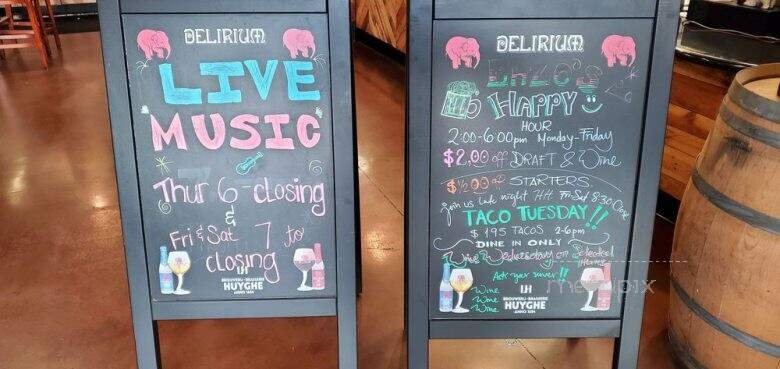 DELIRIUM
LIVE
MUSIC
Thur 6-closing
&
Fri & Sat 7 to
closing
BROUWERIJ-BRASSERIE
HUYGHE
ANNO 1654
DELIRIUM
Enzo's
HAPPY
HOUR
2:00-6:00pm Monday-Friday
$2.00 off DRAFT & Wine
$1/2.00 off STARTERS
join us late night HH Fri Sat 8:30 Close
TACO TUESDAY!!
$1.95 TACOS 2-6pm
DINE IN ONLY
Wine Wednesday on Selected
Ask your server!!
Wine
Wine
Wine
BROUWERIJ-BRASSERIE
HUYGHE
ANNO 1654